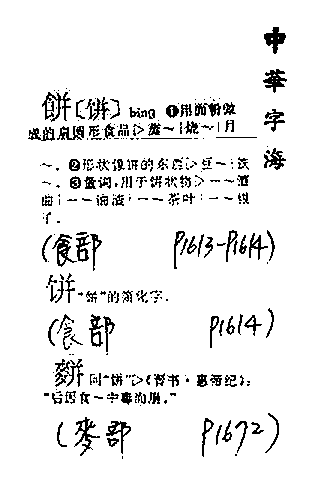 中華字海
餅〔饼〕bǐng ❶用面粉做
成的扁圆形食品▷蒸～|烧～|月
～。❷形状像饼的东西▷豆～|铁
～。❸量词,用于饼状物▷一～酒
曲|一～油渣|一～茶叶|一～银
子。
(食部 P1613-P1614)
饼 "餅"的简化字。
(食部 P1614)
麷 同"饼"▷《晋书·惠帝纪》:
"后因食～中毒而崩。"
(麥部 P1672)